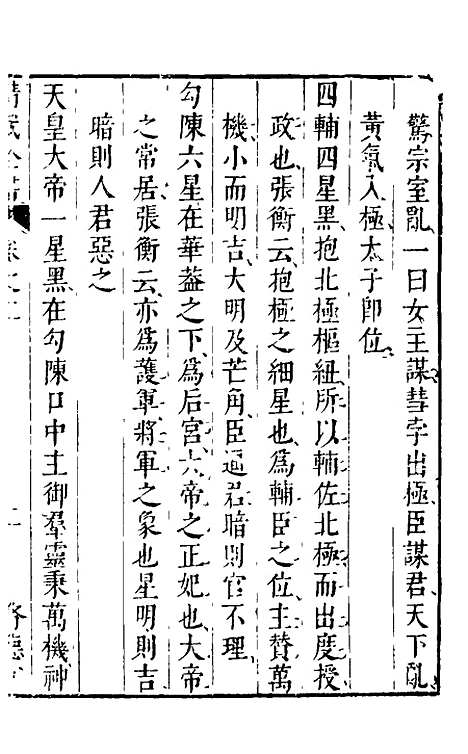 驚宗室亂一曰女主謀彗孛出極臣謀君天下亂
黃氣入極太子卽位
四輔四星黑抱北極樞紐所以輔佐北極而出度授
政也張衡云抱極之細星也爲輔臣之位主贊萬
機小而明吉大明及芒角臣逼君暗則官不理
勾陳六星在華葢之下爲后宮大帝之正妃也大帝
之常居張衡云亦爲護軍將軍之象也星明則吉
暗則人君惡之
天皇大帝一星黑在勾陳口中主御羣靈秉萬機神